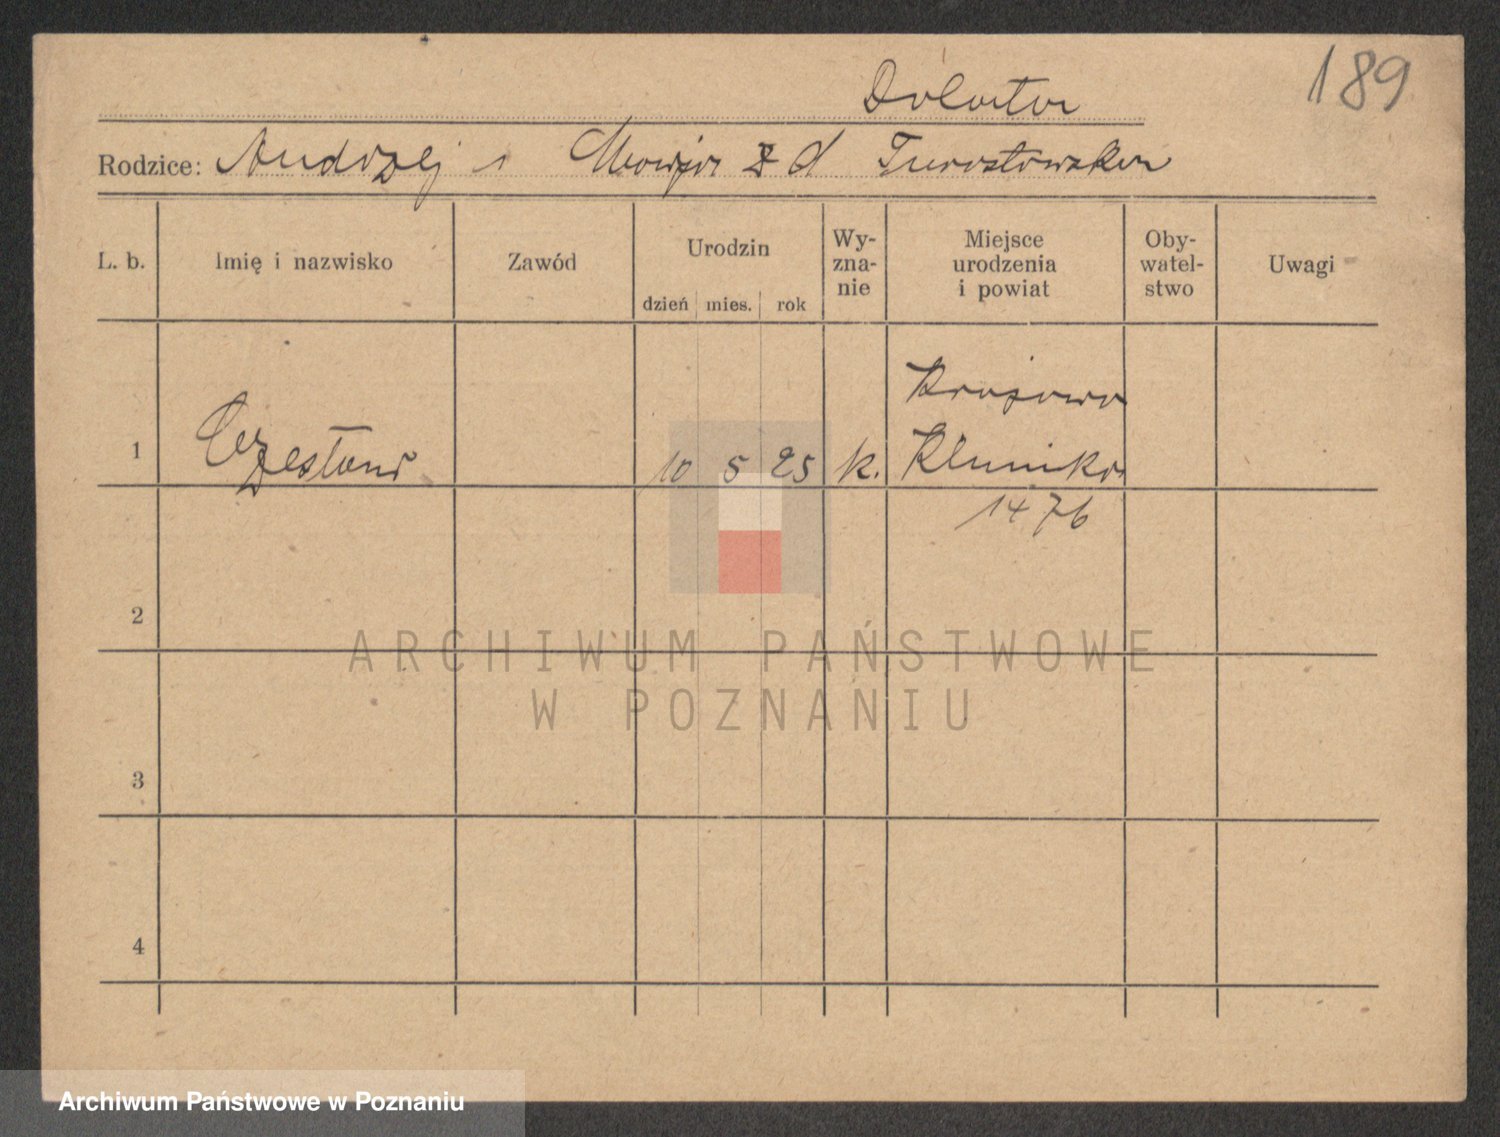 189
Doktor
Rodzice: Andrzej i Marja z d Turostowska
L. b.
Imię i nazwisko
Zawód
Urodzin
dzień mies. rok
Wy-
zna-
nie
Miejsce
urodzenia
i powiat
Oby-
watel-
stwo
Uwagi
1 Czesław 10 5 25 k.
1476
2
3
4
ARCHIWUM PAŃSTWOWE
W POZNANIU
Archiwum Państwowe w Poznaniu